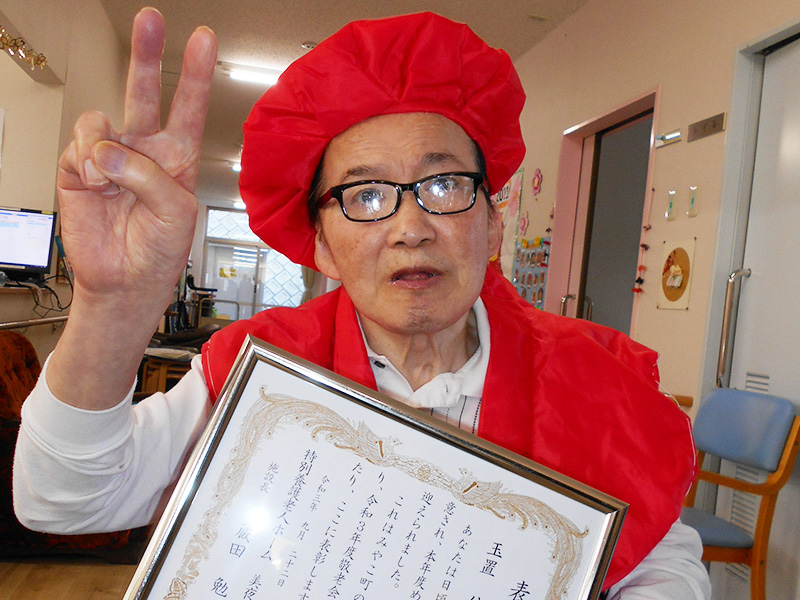 表
玉置
あなたは日頃
意され、本年度め
迎えられました。
これはみやこ町の
り、令和3年度敬老会
たり、ここに表彰しま
令和三年 九月 二十二日
特別養護老人ホーム 美夜
施設長 飯田 勉